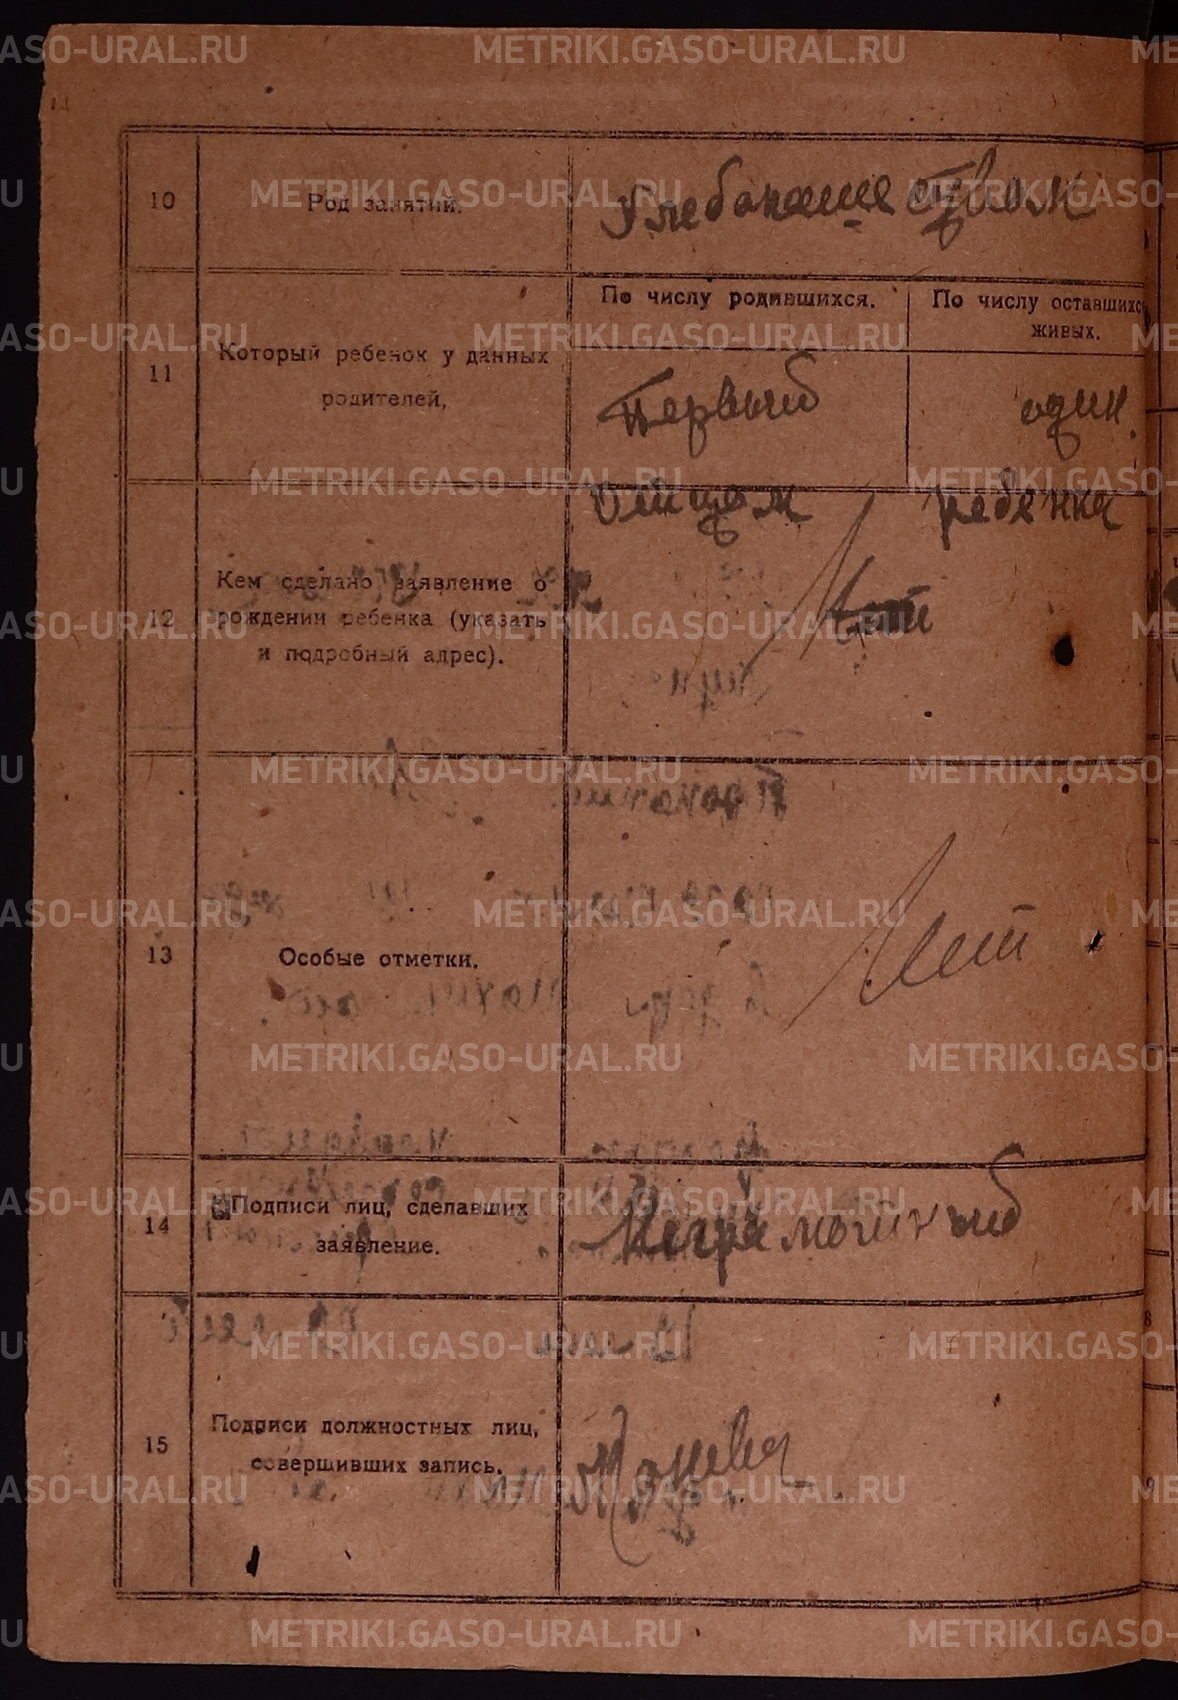 10
Род занятий.
Хлебопашеством
11
Который ребенок у данных
родителей,
По числу родившихся.
По числу оставшихс
живых.
Первый
один.
12
Кем сделано заявление о
рождении ребенка (указать
и подробный адрес).
Отцом ребенка
Нет
13
Особые отметки.
Нет
14
Подписи лиц, сделавших
заявление.
Неграмотный
15
Подписи должностных лиц,
совершивших запись.
METRIKI.GASO-URAL.RU